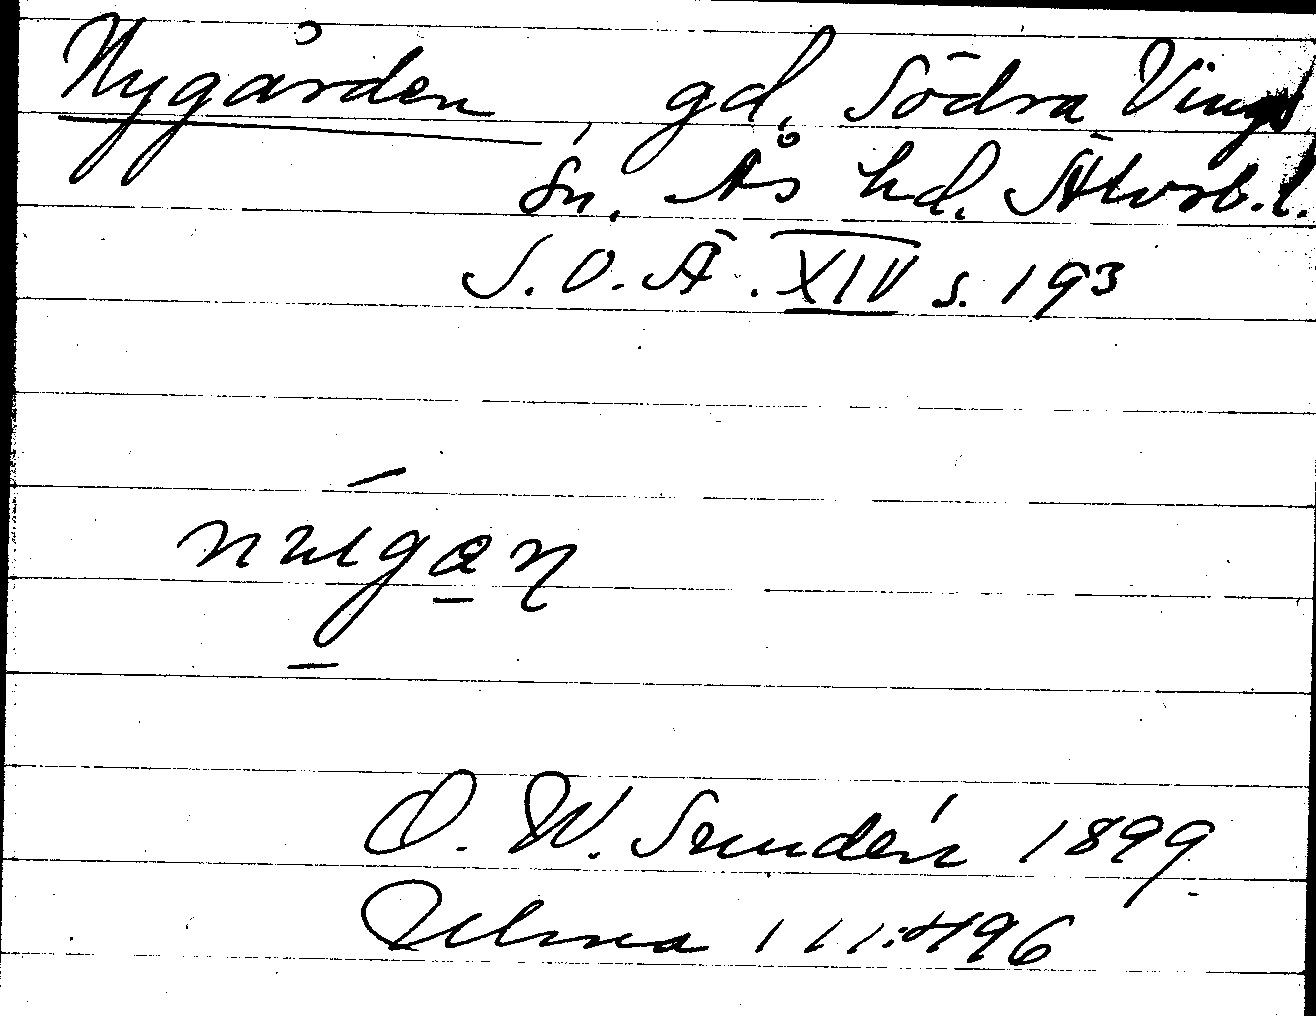 Nygården, gd, Södra Vings
sn, Ås hd. Älvsb.l.
S.O.Ä. XIV s. 193
O. W. Sundén 1899
Ulma 111:496